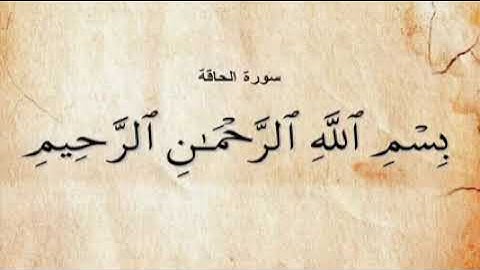 سورة الحاقة
بِسْمِ ٱللَّهِ ٱلرَّحْمَـٰنِ ٱلرَّحِيمِ